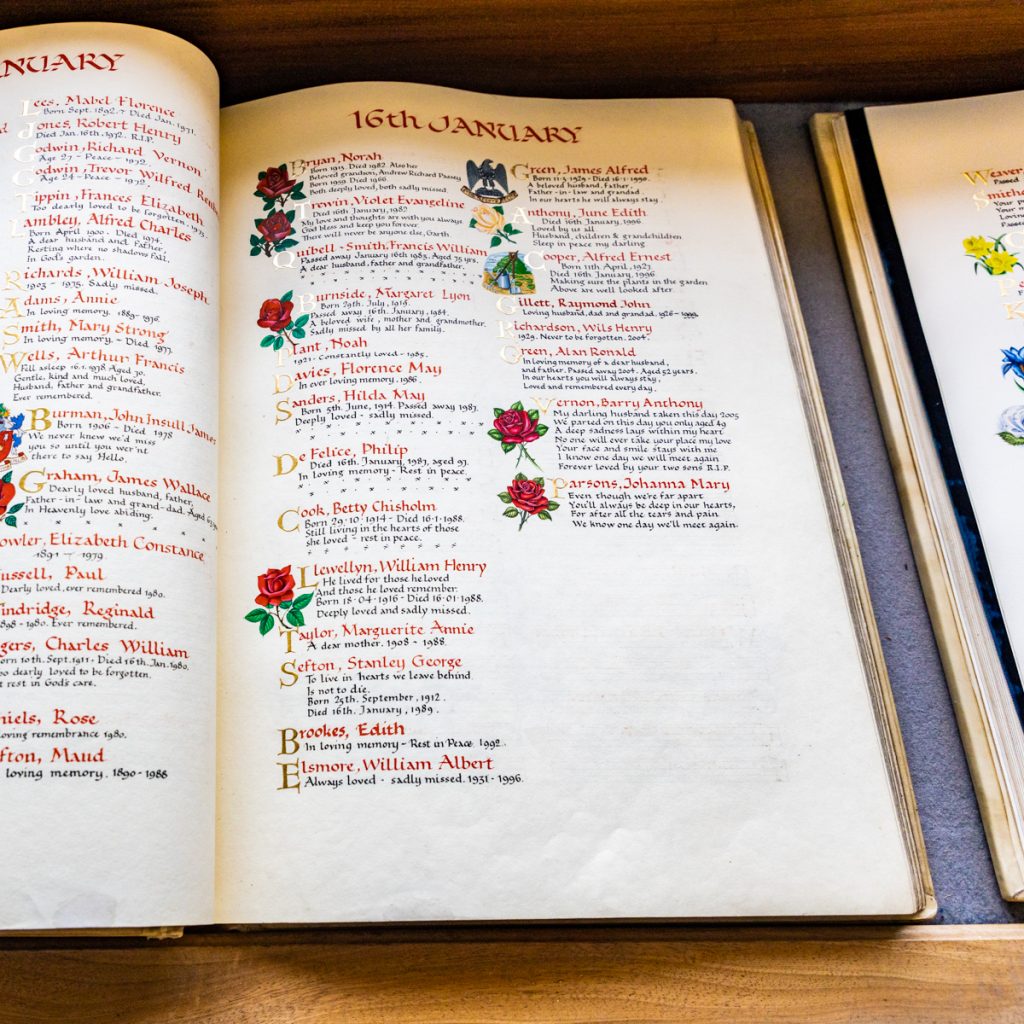 NUARY
Lees, Mabel Florence
Born Sept. 1892 + Died Jan. 1971.
Jones, Robert Henry
Died Jan. 16th, 1972. R.I.P.
Godwin, Richard Vernon
Age 27 - Peace - 1972.
Godwin, Trevor Wilfred
Age 24 - Peace - 1972.
Tippin, Frances Elizabeth
Too dearly loved to be forgotten. 1973.
Lambley, Alfred Charles
Born April 1900. Died 1974.
A dear husband and father,
Resting where no shadows fall,
In God's garden.
Richards, William Joseph
1903 - 1975. Sadly missed.
Adams, Annie
In loving memory. 1889-1976.
Smith, Mary Strong
In loving memory. - Died 1977.
Wells, Arthur Francis
Fell asleep 16.1.1978 Aged 70.
Gentle, kind and much loved,
Husband, father and grandfather.
Ever remembered.
Burman, John Insull James
Born 1906 - Died 1978
We never knew we'd miss
you so until you wer'nt
there to say Hello.
Graham, James Wallace
Dearly loved husband, father,
Father-in-law and grand-dad. Aged
In Heavenly love abiding.
owler, Elizabeth Constance
1891 - 1979
ussell, Paul
Dearly loved, ever remembered 1980.
indridge, Reginald
898 - 1980. Ever remembered.
gers, Charles William
orn 10th. Sept. 1911 + Died 16th. Jan. 1980.
oo dearly loved to be forgotten.
t rest in God's care.
niels, Rose
oving remembrance 1980.
fton, Maud
loving memory. 1890-1988
16th JANUARY
Bryan, Norah
Born 1915. Died 1982. Also her
Beloved grandson, Andrew Richard Passey
Born 1959. Died 1966.
Both deeply loved, both sadly missed
Trowin, Violet Evangeline
Died 16th January, 1982
My love and thoughts are with you always
God bless and keep you forever.
There'll never be anyone else, Garth.
Quibell-Smith, Francis William
Passed away January 16th 1983. Aged 75 yrs.
A dear husband, father and grandfather.
Burnside, Margaret Lyon
Born 29th. July, 1918.
Passed away 16th January, 1984.
A beloved wife, mother and grandmother,
Sadly missed by all her family.
Plant, Noah
1921 - Constantly loved - 1985.
Davies, Florence May
In ever loving memory. 1986.
Sanders, Hilda May
Born 5th June, 1914. Passed away 1987.
Deeply loved - sadly missed.
De Felice, Philip
Died 16th. January, 1987, aged 93.
In loving memory - Rest in peace.
Cook, Betty Chisholm
Born 29·10·1914 - Died 16·1·1988.
Still living in the hearts of those
she loved - rest in peace.
Llewellyn, William Henry
He lived for those he loved
And those he loved remember.
Born 18·04·1916 - Died 16·01·1988.
Deeply loved and sadly missed.
Taylor, Marguerite Annie
A dear mother. 1908 - 1988.
Sefton, Stanley George
To live in hearts we leave behind
Is not to die.
Born 25th. September, 1912.
Died 16th. January, 1989.
Brookes, Edith
In loving memory - Rest in Peace. 1992.
Elsmore, William Albert
Always loved - sadly missed. 1931 - 1996.
Green, James Alfred
Born 11·3·1929 - Died 16·1·1990.
A beloved husband, father,
Father-in-law and grandad
In our hearts he will always stay.
Anthony, June Edith
Died 16th January, 1996
Loved by us all
Husband, children & grandchildren
Sleep in peace my darling
Cooper, Alfred Ernest
Born 11th April, 1927
Died 16th January, 1996
Making sure the plants in the garden
Above are well looked after
Gillett, Raymond John
Loving husband, dad and grandad. 1926 - 1999.
Richardson, Wils Henry
1929. Never to be forgotten. 2004.
Green, Alan Ronald
In loving memory of a dear husband,
and father. Passed away 2004. Aged 52 years.
In our hearts you will always stay,
Loved and remembered every day.
Vernon, Barry Anthony
My darling husband taken this day 2005
We parted on this day you only aged 49
A deep sadness lays within my heart
No one will ever take your place my love
Your face and smile stays with me
I know one day we will meet again
Forever loved by your two sons R.I.P.
Parsons, Johanna Mary
Even though we're far apart
You'll always be deep in our hearts,
For after all the tears and pain
We know one day we'll meet again.
Weaver
Passed